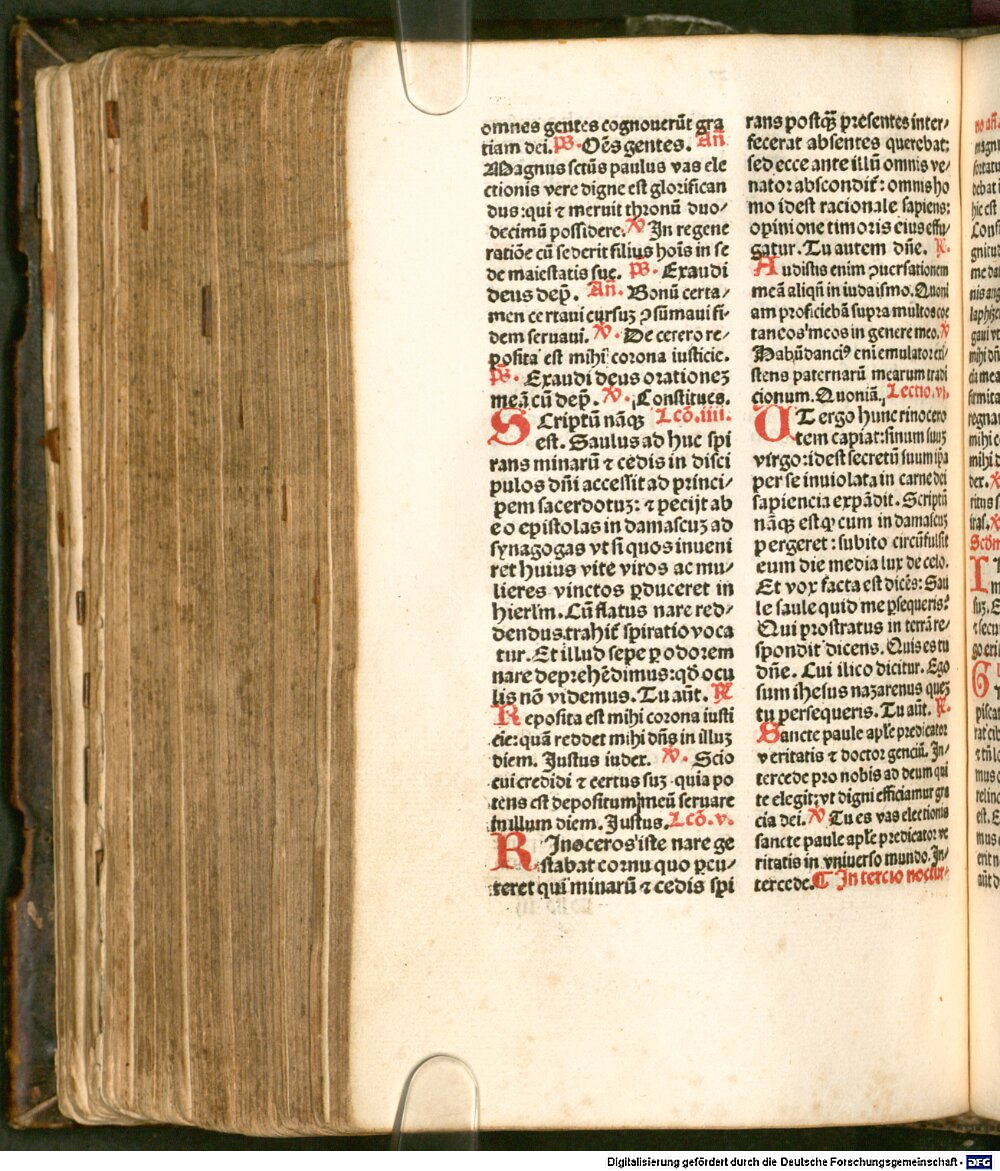 omnes gentes cognouerūt gra
tiam dei. p̄s. Oēs gentes. Añ
Magnus sctūs paulus vas ele
ctionis vere digne est glorifican
dus: qui ⁊ meruit thronū duo/
decimū possidere. v̄ In regene
ratiōe cū sederit filius hoīs in se
de maiestatis sue. p̄s. Exaudi
deus dep̄. Añ. Bonū certa/
men certaui cursuʒ ꝯsūmaui fi/
dem seruaui. v̄. De cetero re/
posita est mihi corona iusticie.
p̄s. Exaudi deus orationeʒ
meā cū dep̄. v̄. Constitues.
Scriptū nāqʒ Lcō. iiii.
est. Saulus ad huc spi
rans minarū ⁊ cedis in disci
pulos dn̄i accessit ad princi/
pem sacerdotuʒ: ⁊ pecijt ab
eo epistolas in damascuʒ ad
synagogas vt si quos inueni
ret huius vite viros ac mu/
lieres vinctos ꝑduceret in
hierl̄m. Cū flatus nare red/
dendus. trahit᷑ spiratio voca
tur. Et illud sepe ꝑ odorem
nare deprehēdimus: qđ ocu
lis nō videmus. Tu aūt. ℟
Reposita est mihi corona iusti
cie: quā reddet mihi dn̄s in illuʒ
diem. Justus iudex. v̄. Scio
cui credidi ⁊ certus suʒ quia po
tens est depositum meū seruare
in illum diem. Justus. Lcō. v.
Rinoceros iste nare ge
stabat cornu quo ꝑcu/
teret qui minarū ⁊ cedis spi
rans postqʒ̄ presentes inter/
fecerat absentes querebat:
sed ecce ante illū omnis ve/
nator abscondit᷑: omnis ho
mo idest racionale sapiens:
opinione timoris eius effu/
gatur. Tu autem dn̄e. ℟.
Audistis enim ꝯuersationem
meā aliqn̄ in iudaismo. Quoni
am proficiebā supra multos coe
taneos meos in genere meo. v̄
Habūdanciꝰ eni emulator exi/
stens paternarū mearum tradi
cionum. Quoniā. Lectio. vj.
At ergo hunc rinocero
tem capiat: sinum suuʒ
virgo: idest secretū suum ip̄a
per se inuiolata in carne dei
sapiencia expādit. Scriptū
nāqʒ est qʒ cum in damascuʒ
pergeret: subito circūfulsit
eum die media lux de celo.
Et vox facta est dicēs: Sau
le saule quid me ꝑsequeris?
Qui prostratus in terrā re/
spondit dicens. Quis es tu
dn̄e. Cui ilico dicitur. Ego
sum ihesus naʒarenus queʒ
tu persequeris. Tu aūt. ℟.
Sancte paule apl̄e predicator
veritatis ⁊ doctor genciū. In/
tercede pro nobis ad deum qui
te elegit: vt digni efficiamur gra
cia dei. v̄ Tu es vas electionis
sancte paule apl̄e predicator ve
ritatis in vniuerso mundo. In/
tercede. ¶ In tercio noctur/
Digitalisierung gefördert durch die Deutsche Forschungsgemeinschaft - DFG